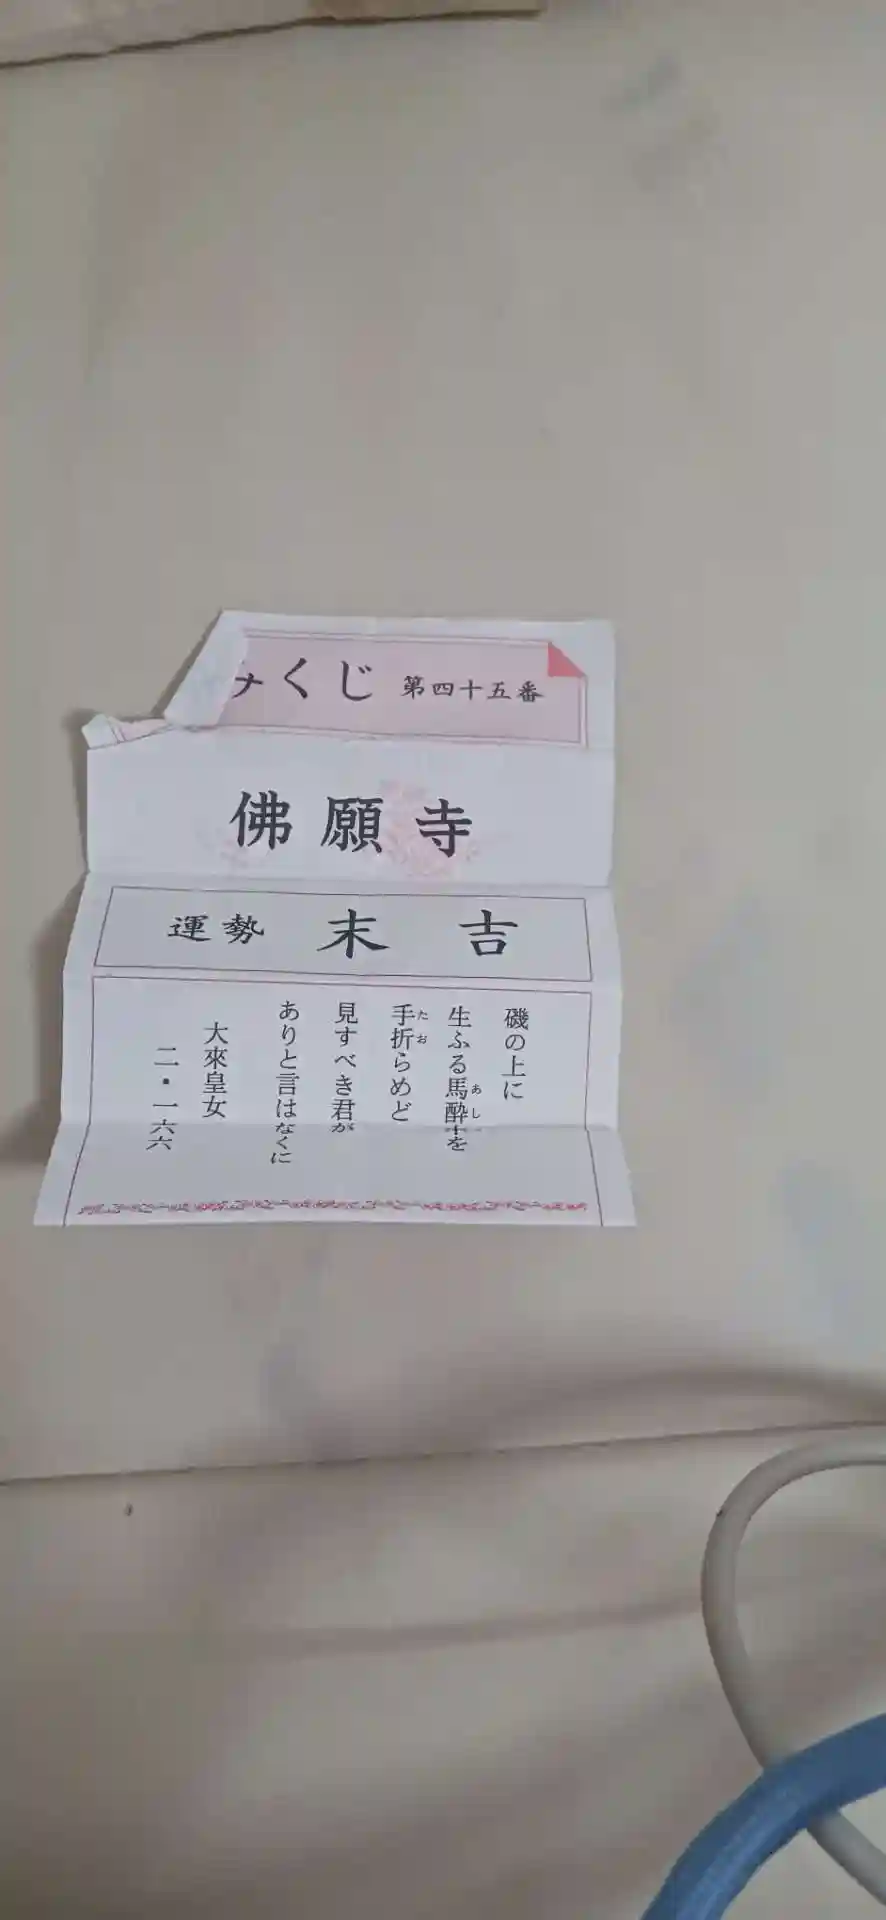 みくじ 第四十五番
佛願寺
運勢 末吉
磯の上に
生ふる馬酔木を
手折らめど
見すべき君が
ありと言はなくに
大來皇女
二・一六六